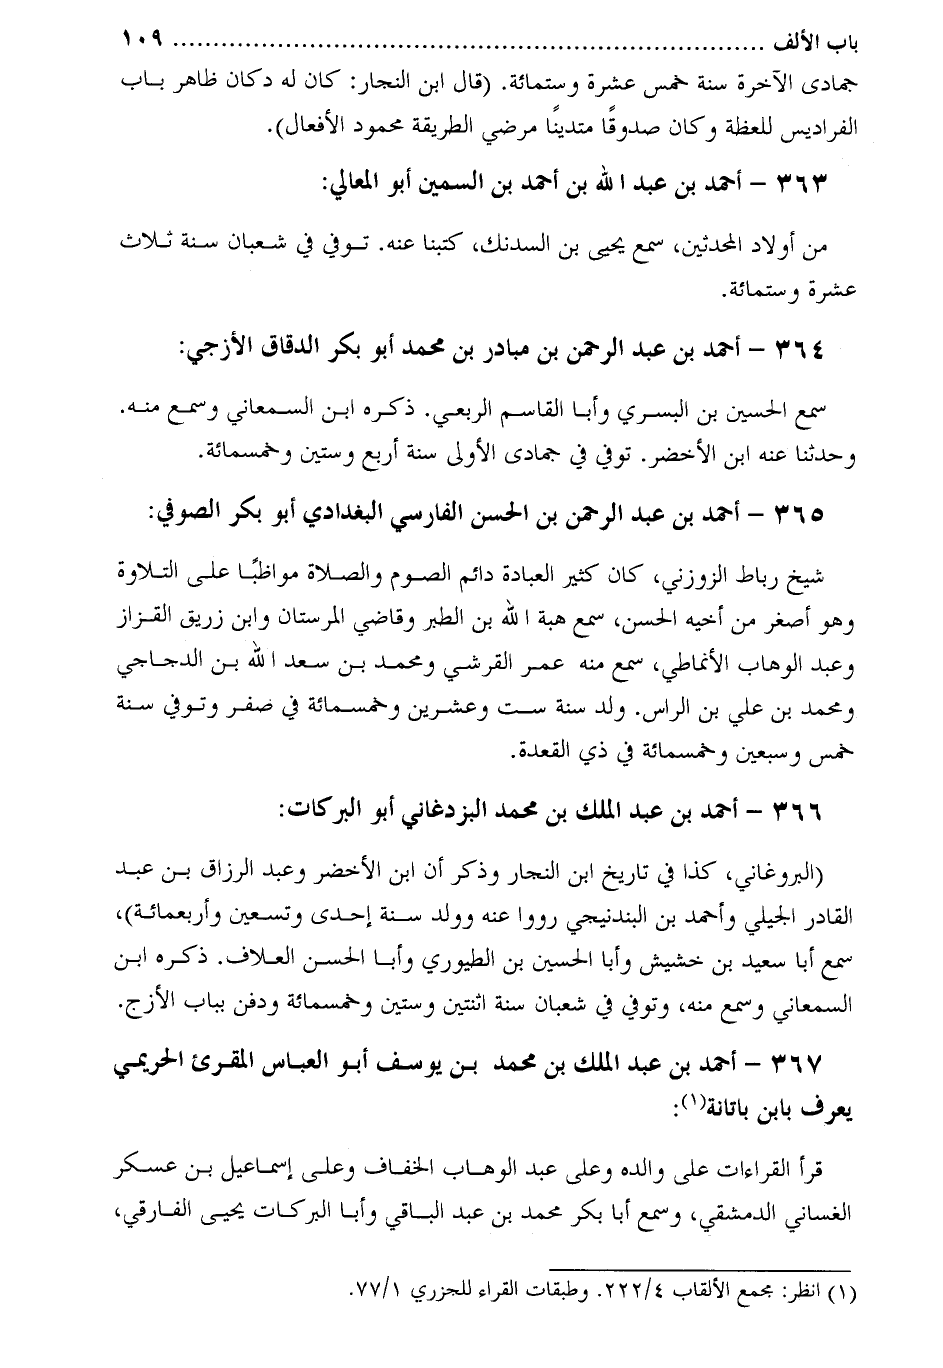 باب الألف ........................................................................... ١٠٩
جمادى الآخرة سنة خمس عشرة وستمائة. (قال ابن النجار: كان له دكان ظاهر باب
الفراديس للعظة وكان صدوقًا متدينًا مرضي الطريقة محمود الأفعال).
٣٦٣ – أحمد بن عبد الله بن أحمد بن السمين أبو المعالي:
من أولاد المحدثين، سمع يحيى بن السدنك، كتبنا عنه. توفي في شعبان سنة ثلاث
عشرة وستمائة.
٣٦٤ – أحمد بن عبد الرحمن بن مبادر بن محمد أبو بكر الدقاق الأزجي:
سمع الحسين بن البسري وأبا القاسم الربعي. ذكره ابن السمعاني وسمع منه.
وحدثنا عنه ابن الأخضر. توفي في جمادى الأولى سنة أربع وستين وخمسمائة.
٣٦٥ – أحمد بن عبد الرحمن بن الحسن الفارسي البغدادي أبو بكر الصوفي:
شيخ رباط الزوزني، كان كثير العبادة دائم الصوم والصلاة مواظبًا على التلاوة
وهو أصغر من أخيه الحسن، سمع هبة الله بن الطبر وقاضي المرستان وابن زريق القزاز
وعبد الوهاب الأنماطي، سمع منه عمر القرشي ومحمد بن سعد الله بن الدجاجي
ومحمد بن علي بن الراس. ولد سنة ست وعشرين وخمسمائة في صفر وتوفي سنة
خمس وسبعين وخمسمائة في ذي القعدة.
٣٦٦ – أحمد بن عبد الملك بن محمد البزدغاني أبو البركات:
(البروغاني، كذا في تاريخ ابن النجار وذكر أن ابن الأخضر وعبد الرزاق بن عبد
القادر الجيلي وأحمد بن البندنيجي رووا عنه وولد سنة إحدى وتسعين وأربعمائة)،
سمع أبا سعيد بن خشيش وأبا الحسين بن الطيوري وأبا الحسن العلاف. ذكره ابن
السمعاني وسمع منه، وتوفي في شعبان سنة اثنتين وستين وخمسمائة ودفن بباب الأزج.
٣٦٧ – أحمد بن عبد الملك بن محمد بن يوسف أبو العباس المقرئ الحريمي
يعرف بابن باتانة(١):
قرأ القراءات على والده وعلى عبد الوهاب الخفاف وعلى إسماعيل بن عسكر
الغساني الدمشقي، وسمع أبا بكر محمد بن عبد الباقي وأبا البركات يحيى الفارقي،
(١) انظر: مجمع الألقاب ٢٢٢/٤. وطبقات القراء للجزري ٧٧/١.